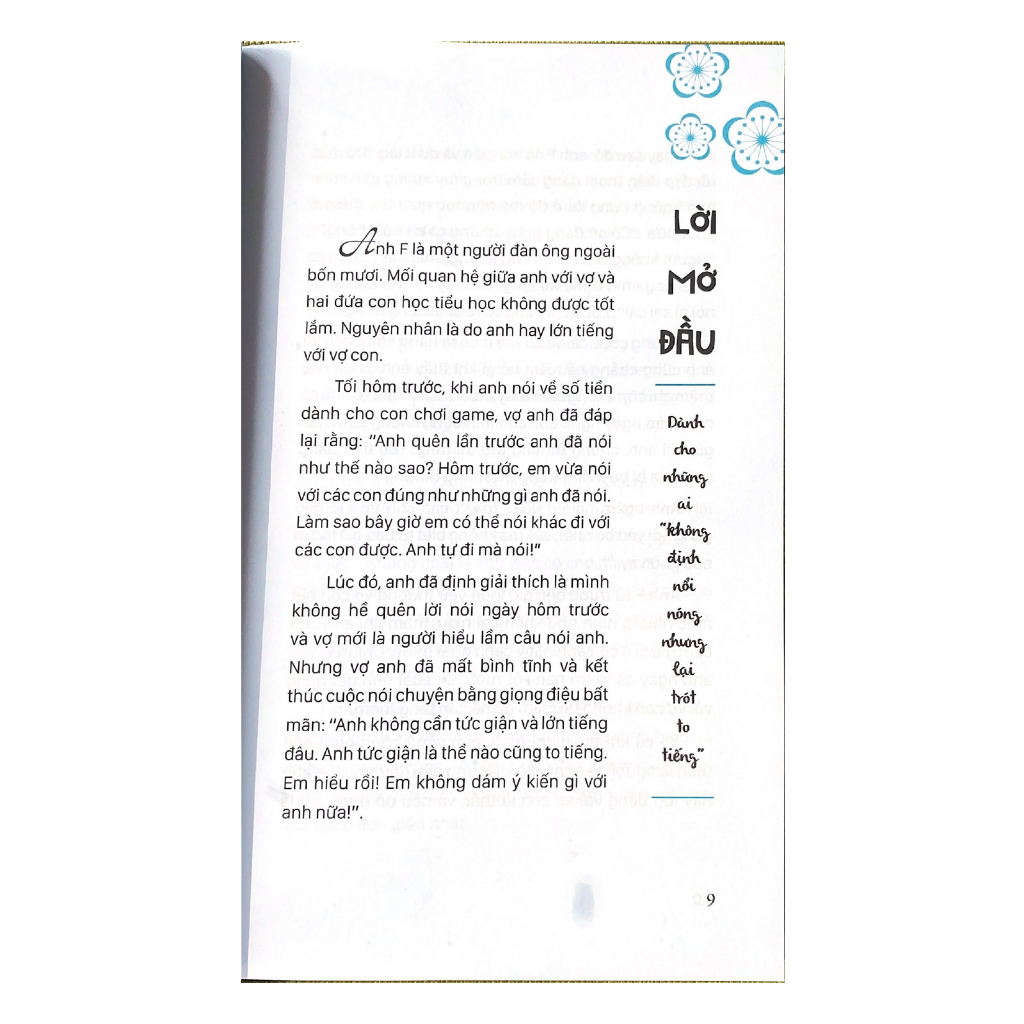 LỜI
MỞ
ĐẦU
Dành
cho
những
ai
"không
định
nổi
nóng
nhưng
lại
trót
to
tiếng"
Anh F là một người đàn ông ngoài
bốn mươi. Mối quan hệ giữa anh với vợ và
hai đứa con học tiểu học không được tốt
lắm. Nguyên nhân là do anh hay lớn tiếng
với vợ con.
Tối hôm trước, khi anh nói về số tiền
dành cho con chơi game, vợ anh đã đáp
lại rằng: “Anh quên lần trước anh đã nói
như thế nào sao? Hôm trước, em vừa nói
với các con đúng như những gì anh đã nói.
Làm sao bây giờ em có thể nói khác đi với
các con được. Anh tự đi mà nói!”
Lúc đó, anh đã định giải thích là mình
không hề quên lời nói ngày hôm trước
và vợ mới là người hiểu lầm câu nói anh.
Nhưng vợ anh đã mất bình tĩnh và kết
thúc cuộc nói chuyện bằng giọng điệu bất
mãn: “Anh không cần tức giận và lớn tiếng
đâu. Anh tức giận là thể nào cũng to tiếng.
Em hiểu rồi! Em không dám ý kiến gì với
anh nữa!”.
9